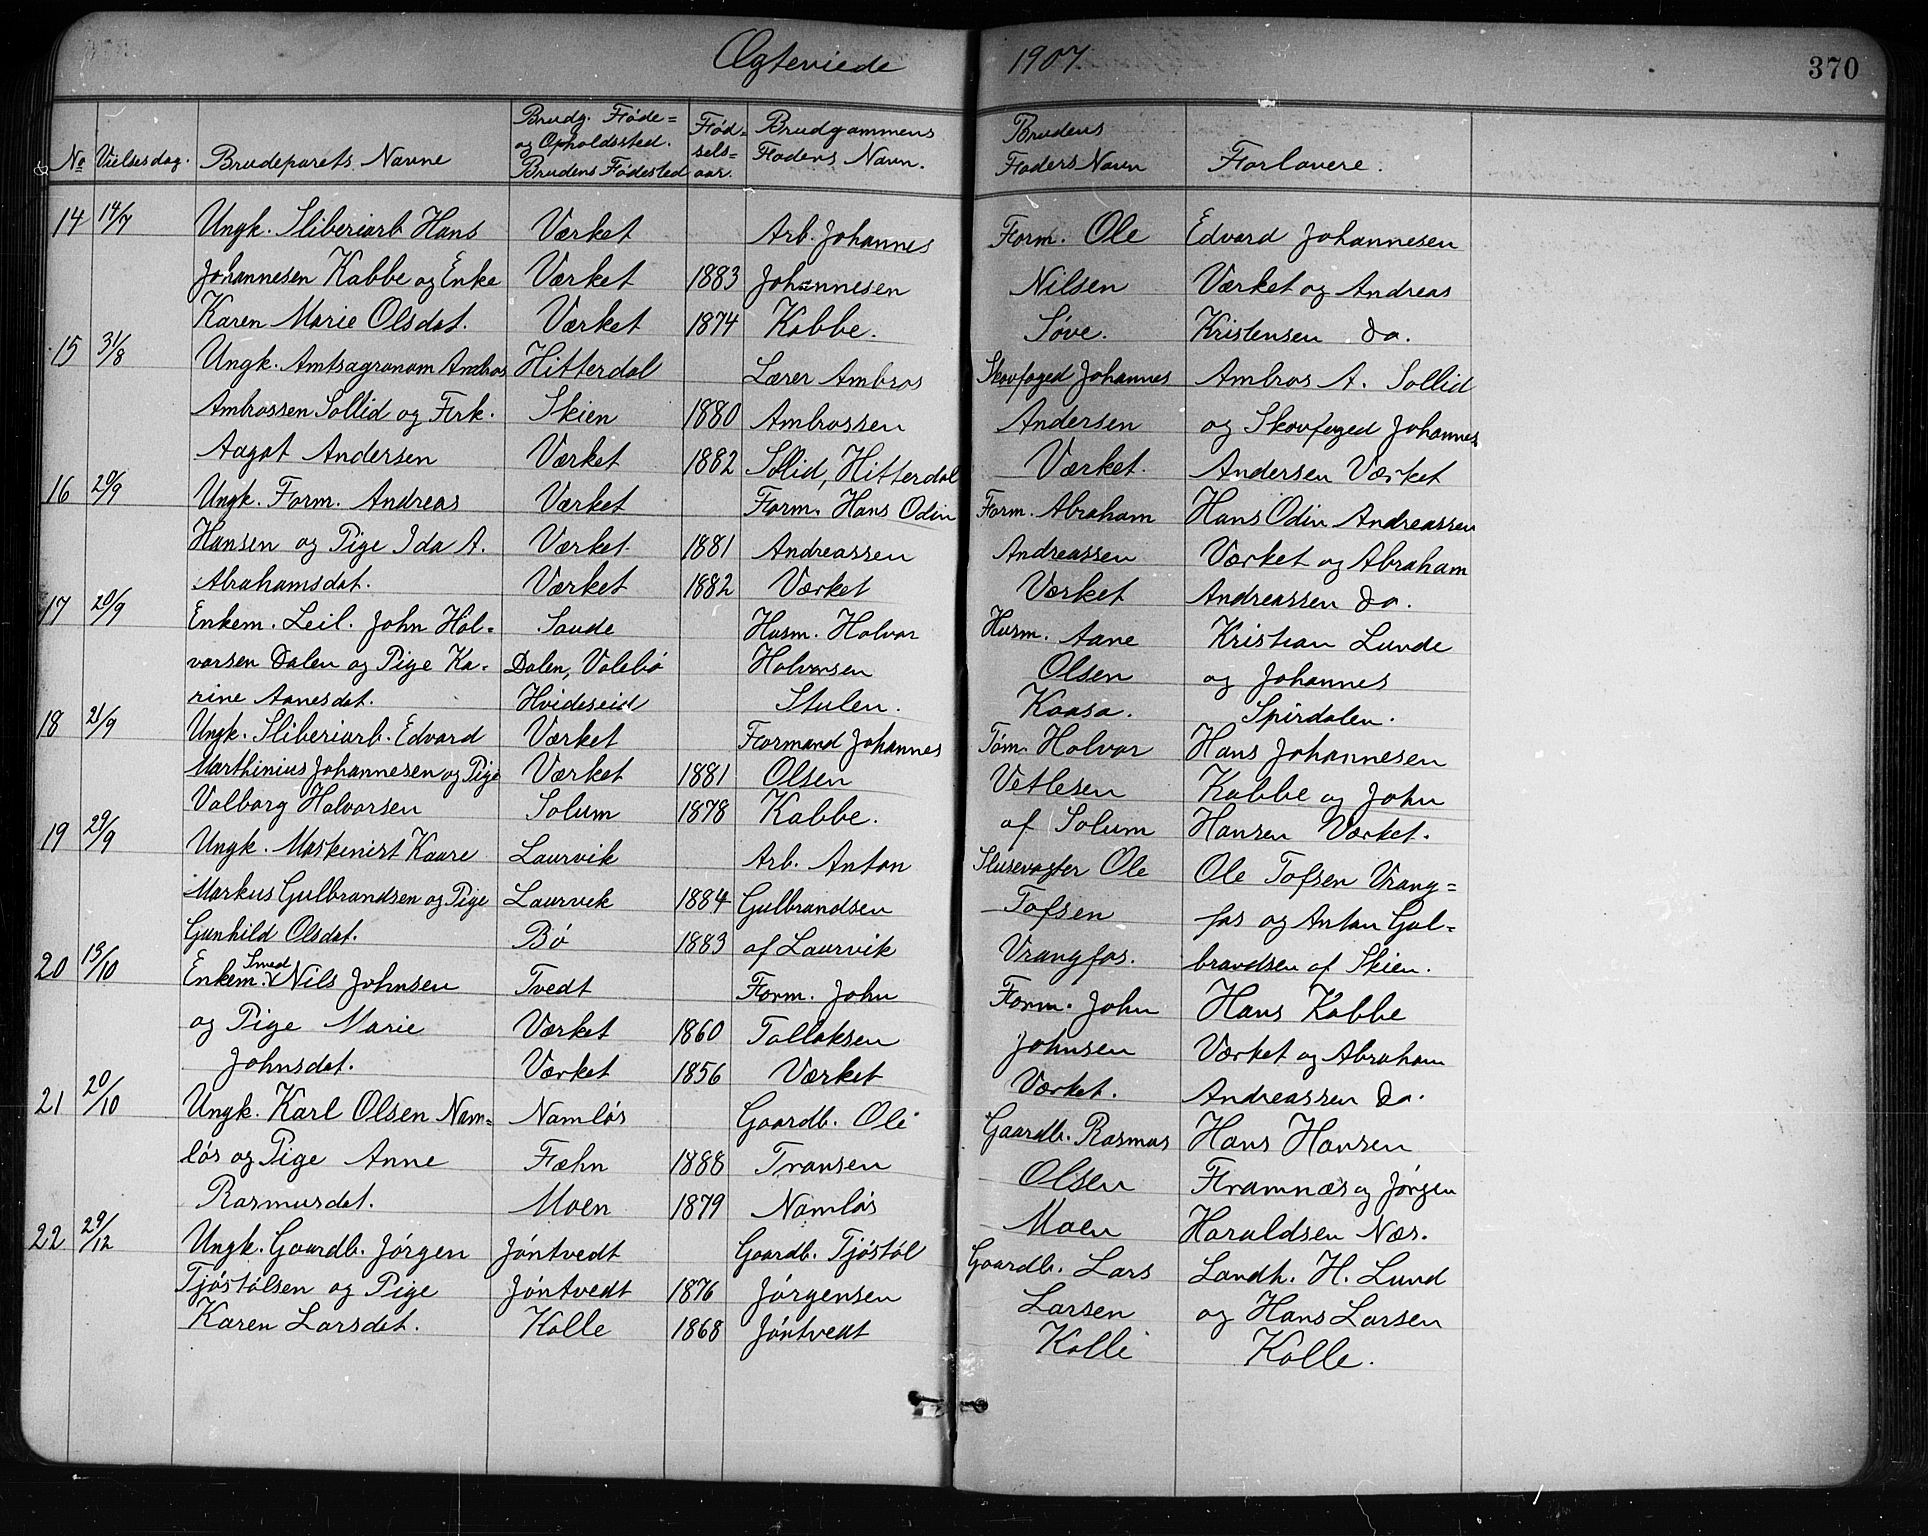 Ægteviede 1907 370
No Vielsesdag. Brudeparets Navne Brudg. Føde= og Opholdssted. Brudens Fødested Fød= sels= aar. Brudgommens Faders Navn. Brudens Faders Navn Forlovere.
14 14/7 Ungk. Sliberiarb. Hans Værket Arb. Johannes Form. Ole Edvard Johannesen
Johannesen Kabbe og Enke Værket 1883 Johannesen Nilsen Værket og Andreas
Karen Marie Olsdat. Værket 1874 Kabbe. Søve. Kristensen do.
15 31/8 Ungk. Amtsagronom Ambros Hitterdal Lærer Ambros Skovfoged Johannes Ambros A. Sollid
Ambrossen Sollid og Frk. Skien 1880 Ambrossen Andersen og Skovfoged Johannes
Aagot Andersen Værket 1882 Sollid, Hitterdal Værket. Andersen Værket
16 20/9 Ungk. Form. Andreas Værket Form. Hans Odin Form. Abraham Hans Odin Andreassen
Hansen og Pige Ida A. Værket. 1881 Andreassen Andreassen Værket og Abraham
Abrahamsdat. Værket 1882 Værket Værket Andreassen do.
17 20/9 Enkem. Leil. John Hol= Saude Husm. Holvor Husm. Aane Kristian Lunde
vorsen Dalen og Pige Ka= Dalen, Valebø Holvorsen Olsen og Johannes
rine Aanesdat. Hvideseid Stulen. Kaasa. Spirdalen.
18 21/9 Ungk. Sliberiarb. Edvard Værket Formand Johannes Tøm. Holvor Hans Johannesen
Marthinius Johannesen og Pige Værket 1881 Olsen Vetlesen Kabbe og John
Valborg Halvorsen Solum 1878 Kabbe. af Solum Hansen Værket.
19 29/9 Ungk. Maskenist Kaare Laurvik Arb. Anton Slusevogter Ole Ole Tofsen Vrang=
Markus Gulbrandsen og Pige Laurvik 1884 Gulbrandsen Tofsen fos og Anton Gul=
Gunhild Olsdat. Bø 1883 af Laurvik Vrangfos. brandsen af Skien.
20 13/10 Enkem. Smed Nils Johnsen Tvedt Form. John Form. John Hans Kabbe
og Pige Marie Værket 1860 Tollaksen Johnsen Værket og Abraham
Johnsdat. Værket 1856 Værket Værket. Andreassen do.
21 20/10 Ungk. Karl Olsen Nam= Namløs Gaardb. Ole Gaardb. Rasmus Hans Hansen
løs og Pige Anne Fæhn 1888 Transen Olsen Framnæs og Jørgen
Rasmusdat. Moen 1879 Namløs Moen Haraldsen Næs.
22 29/12 Ungk. Gaardb. Jørgen Jøntvedt Gaardb. Tjøstøl Gaardb. Lars Landh. H. Lund
Tjøstølsen og Pige Jøntvedt 1876 Jørgensen Larsen og Hans Larsen
Karen Larsdat. Kolle 1868 Jøntvedt Kolle Kolle.